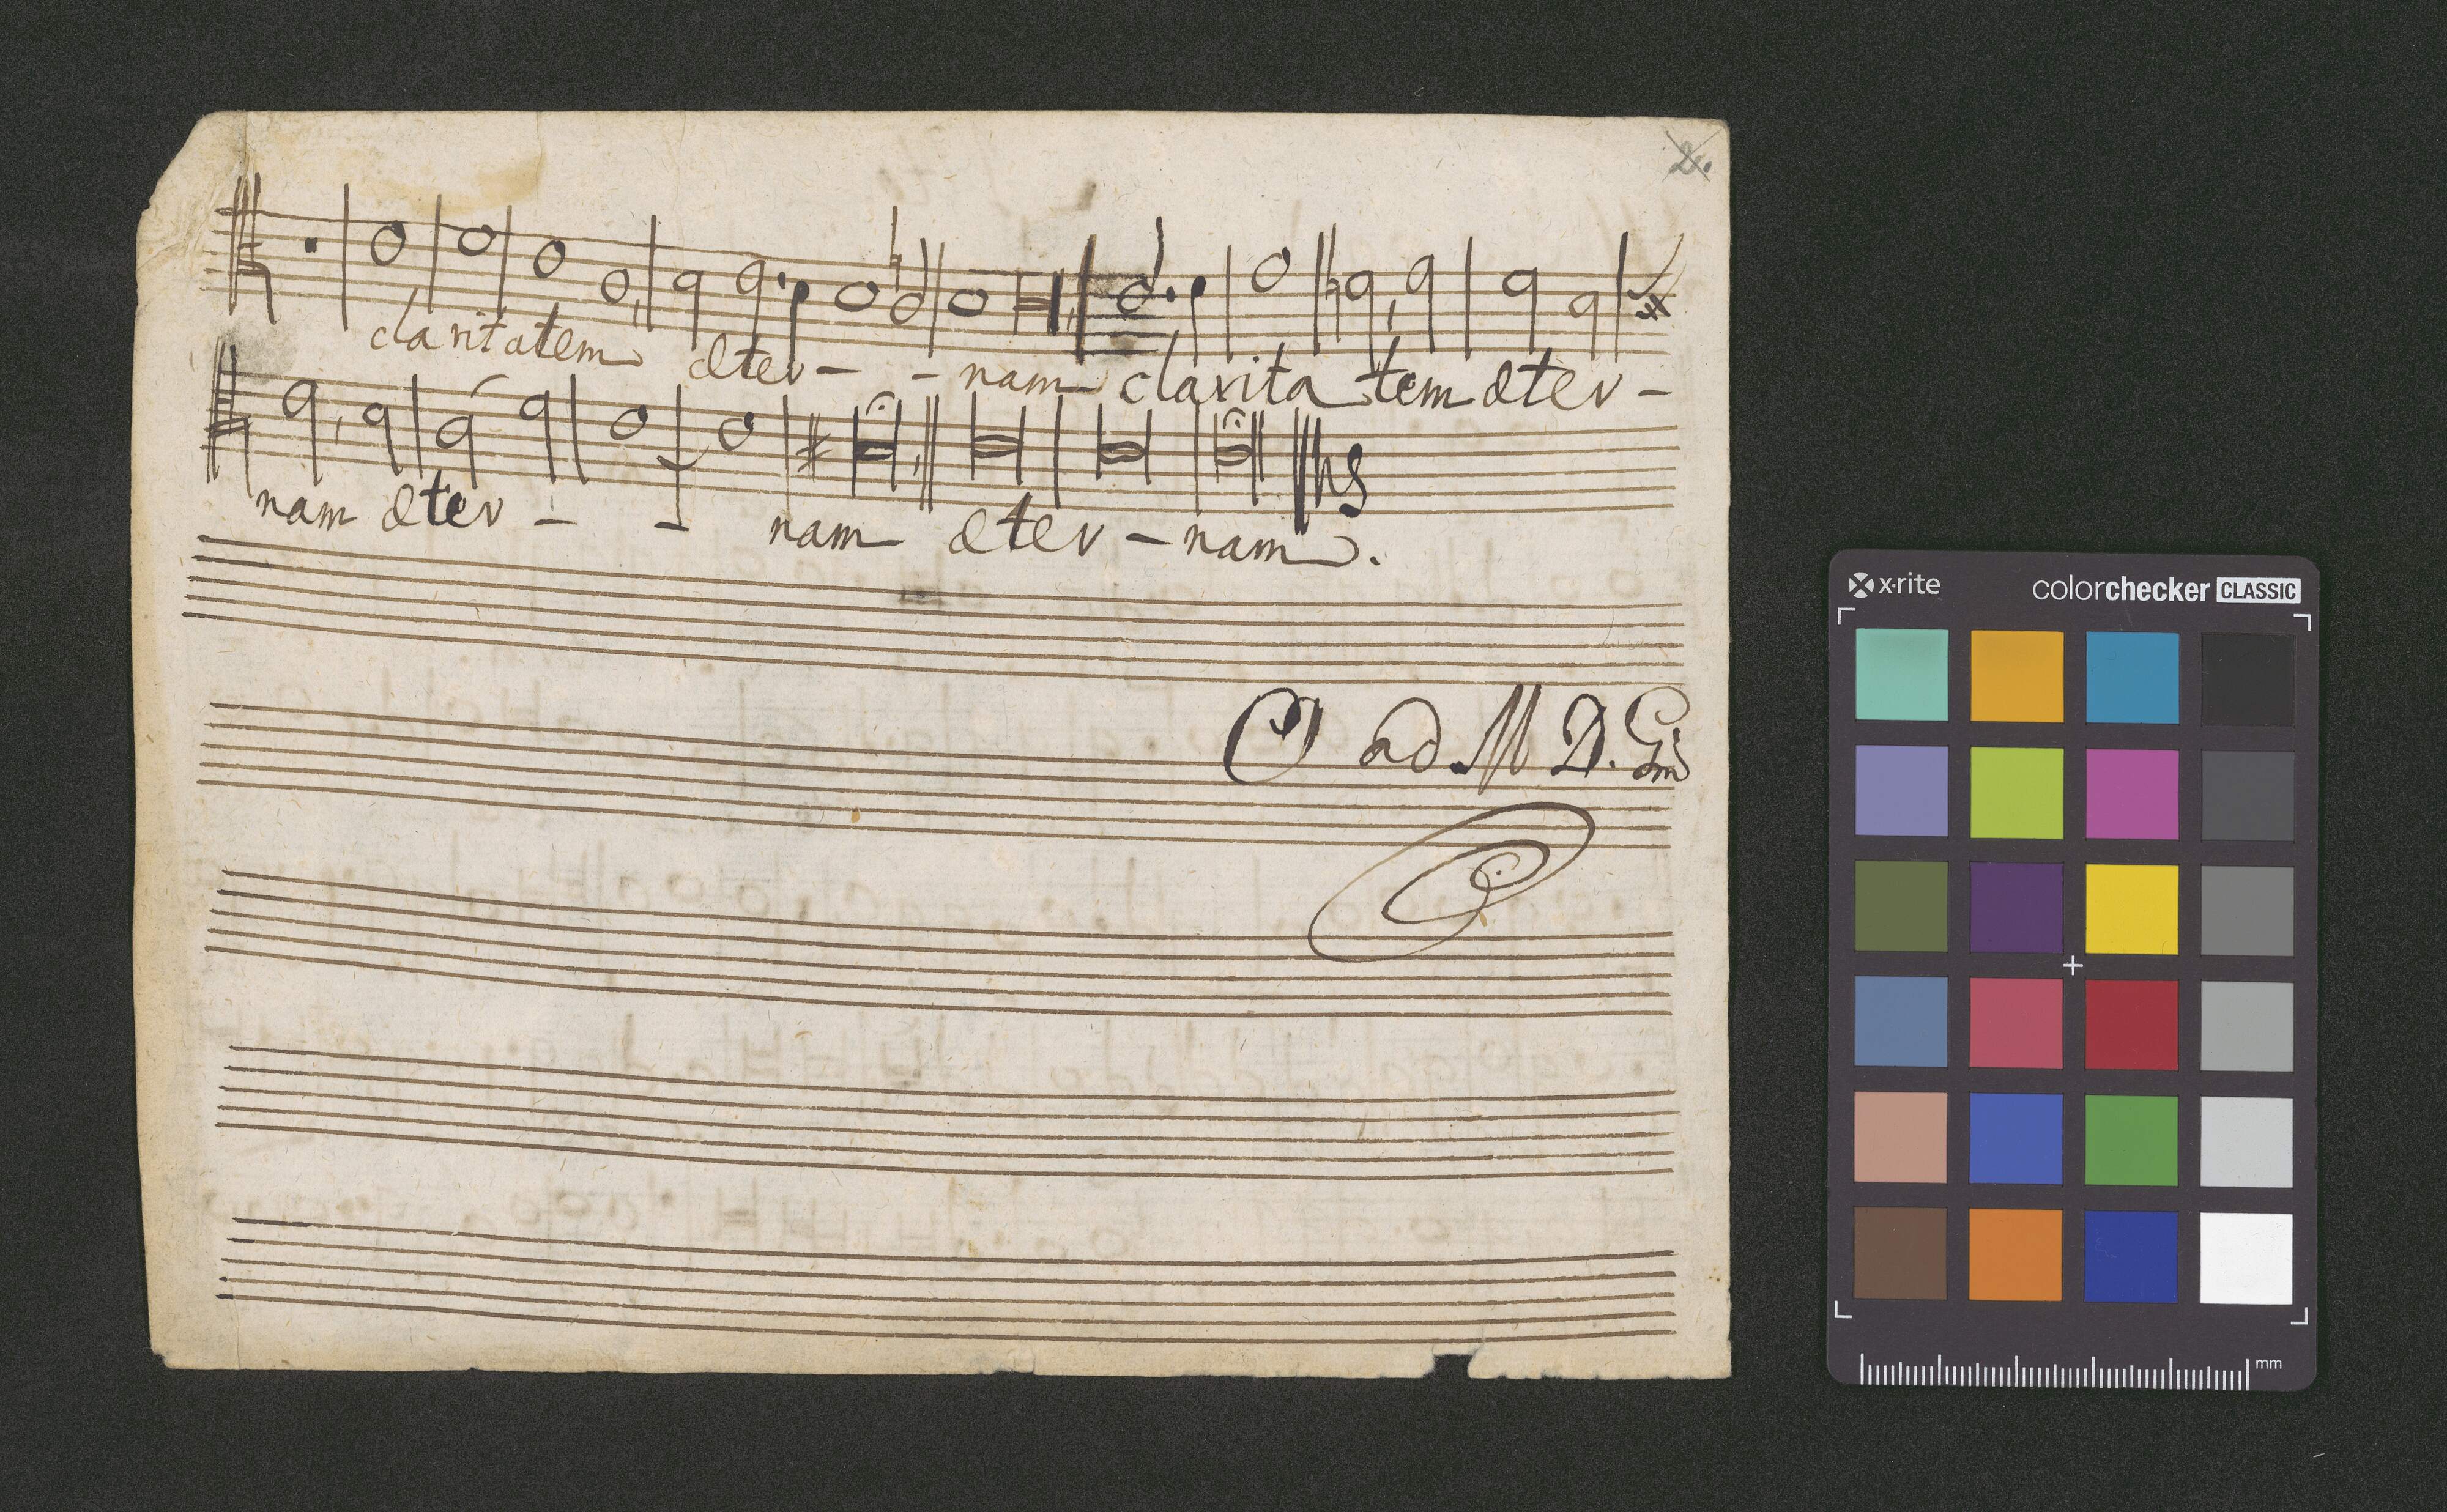 2.
claritatem æter - - nam claritatem æter -
nam æter - - nam æter - nam.
O ad M D. G
x-rite colorchecker CLASSIC
mm